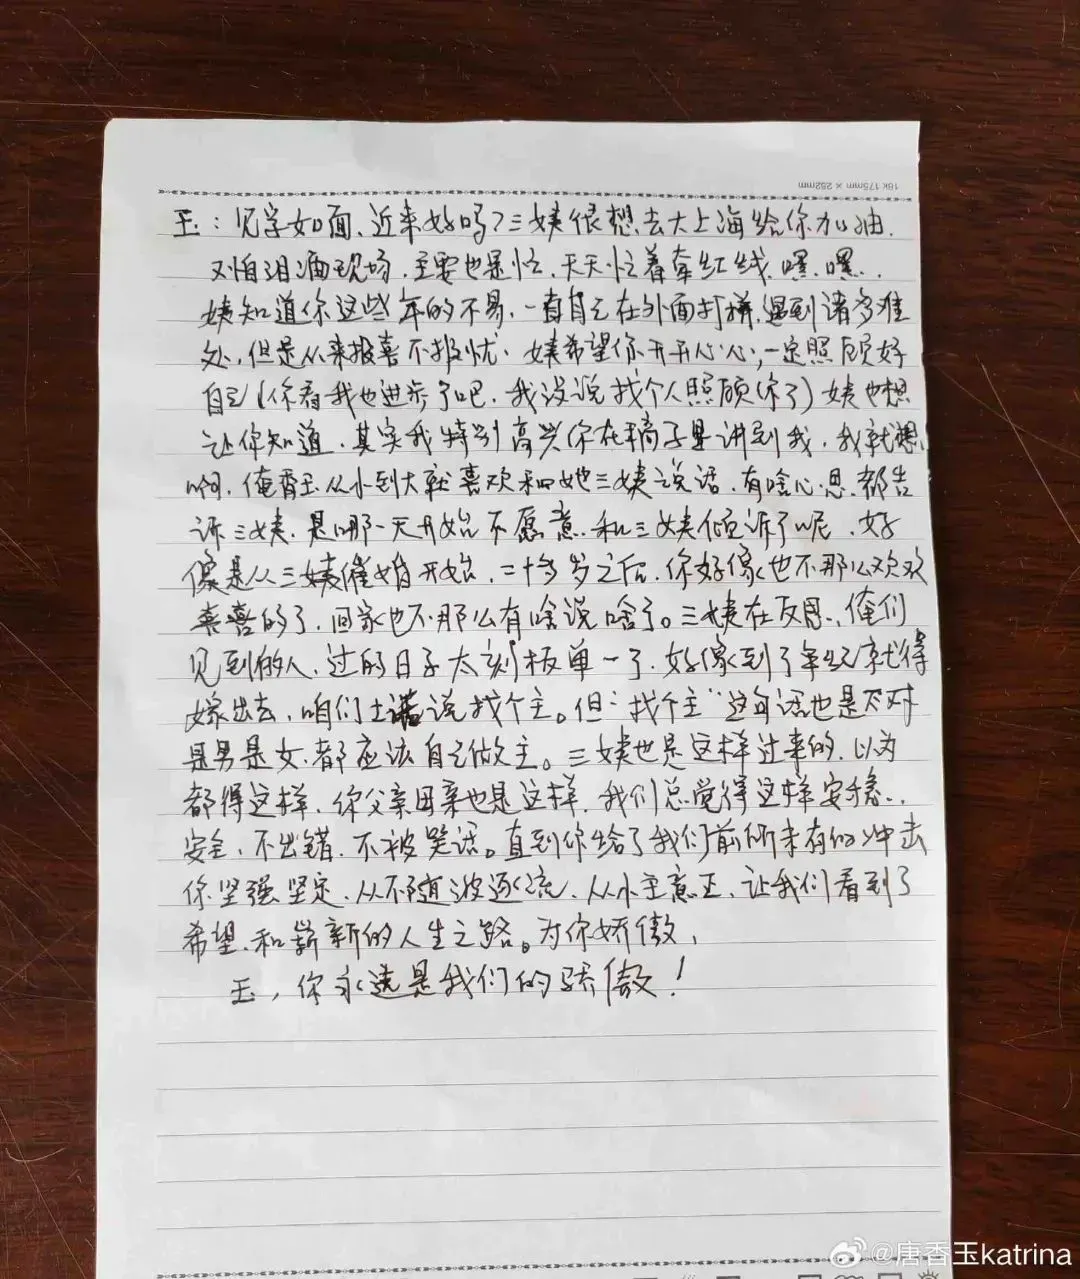 18K 175mm × 252mm
玉：见字如面，近来好吗？三姨很想去大上海给你加油，
又怕泪洒现场，主要也是忙，天天忙着牵红线，嘿，嘿..
姨知道你这些年的不易，一直自己在外面打拼，遇到诸多难
处，但是从来报喜不报忧，姨希望你开开心心，一定照顾好
自己（你看我也进步了吧，我没说找个人照顾你了）姨也想
让你知道，其实我特别高兴你在稿子里讲到我，我就想
啊，俺香玉从小到大就喜欢和她三姨说话，有啥心思都告
诉三姨，是哪一天开始不愿意和三姨倾诉了呢，好
像是从三姨催婚开始，二十多岁之后，你好像也不那么欢欢
喜喜的了，回家也不那么有啥说啥了。三姨在反思，俺们
见到的人，过的日子太刻板单一了，好像到了年纪就得
嫁出去，咱们土话说找个主。但“找个主”这句话也是不对
是男是女，都应该自己做主。三姨也是这样过来的，以为
都得这样，你父亲母亲也是这样，我们总觉得这样安稳..
安全，不出错，不被笑话。直到你给了我们前所未有的冲击
你坚强坚定，从不随波逐流，从小主意正，让我们看到了
希望，和崭新的人生之路。为你骄傲，
玉，你永远是我们的骄傲！
@唐香玉katrina